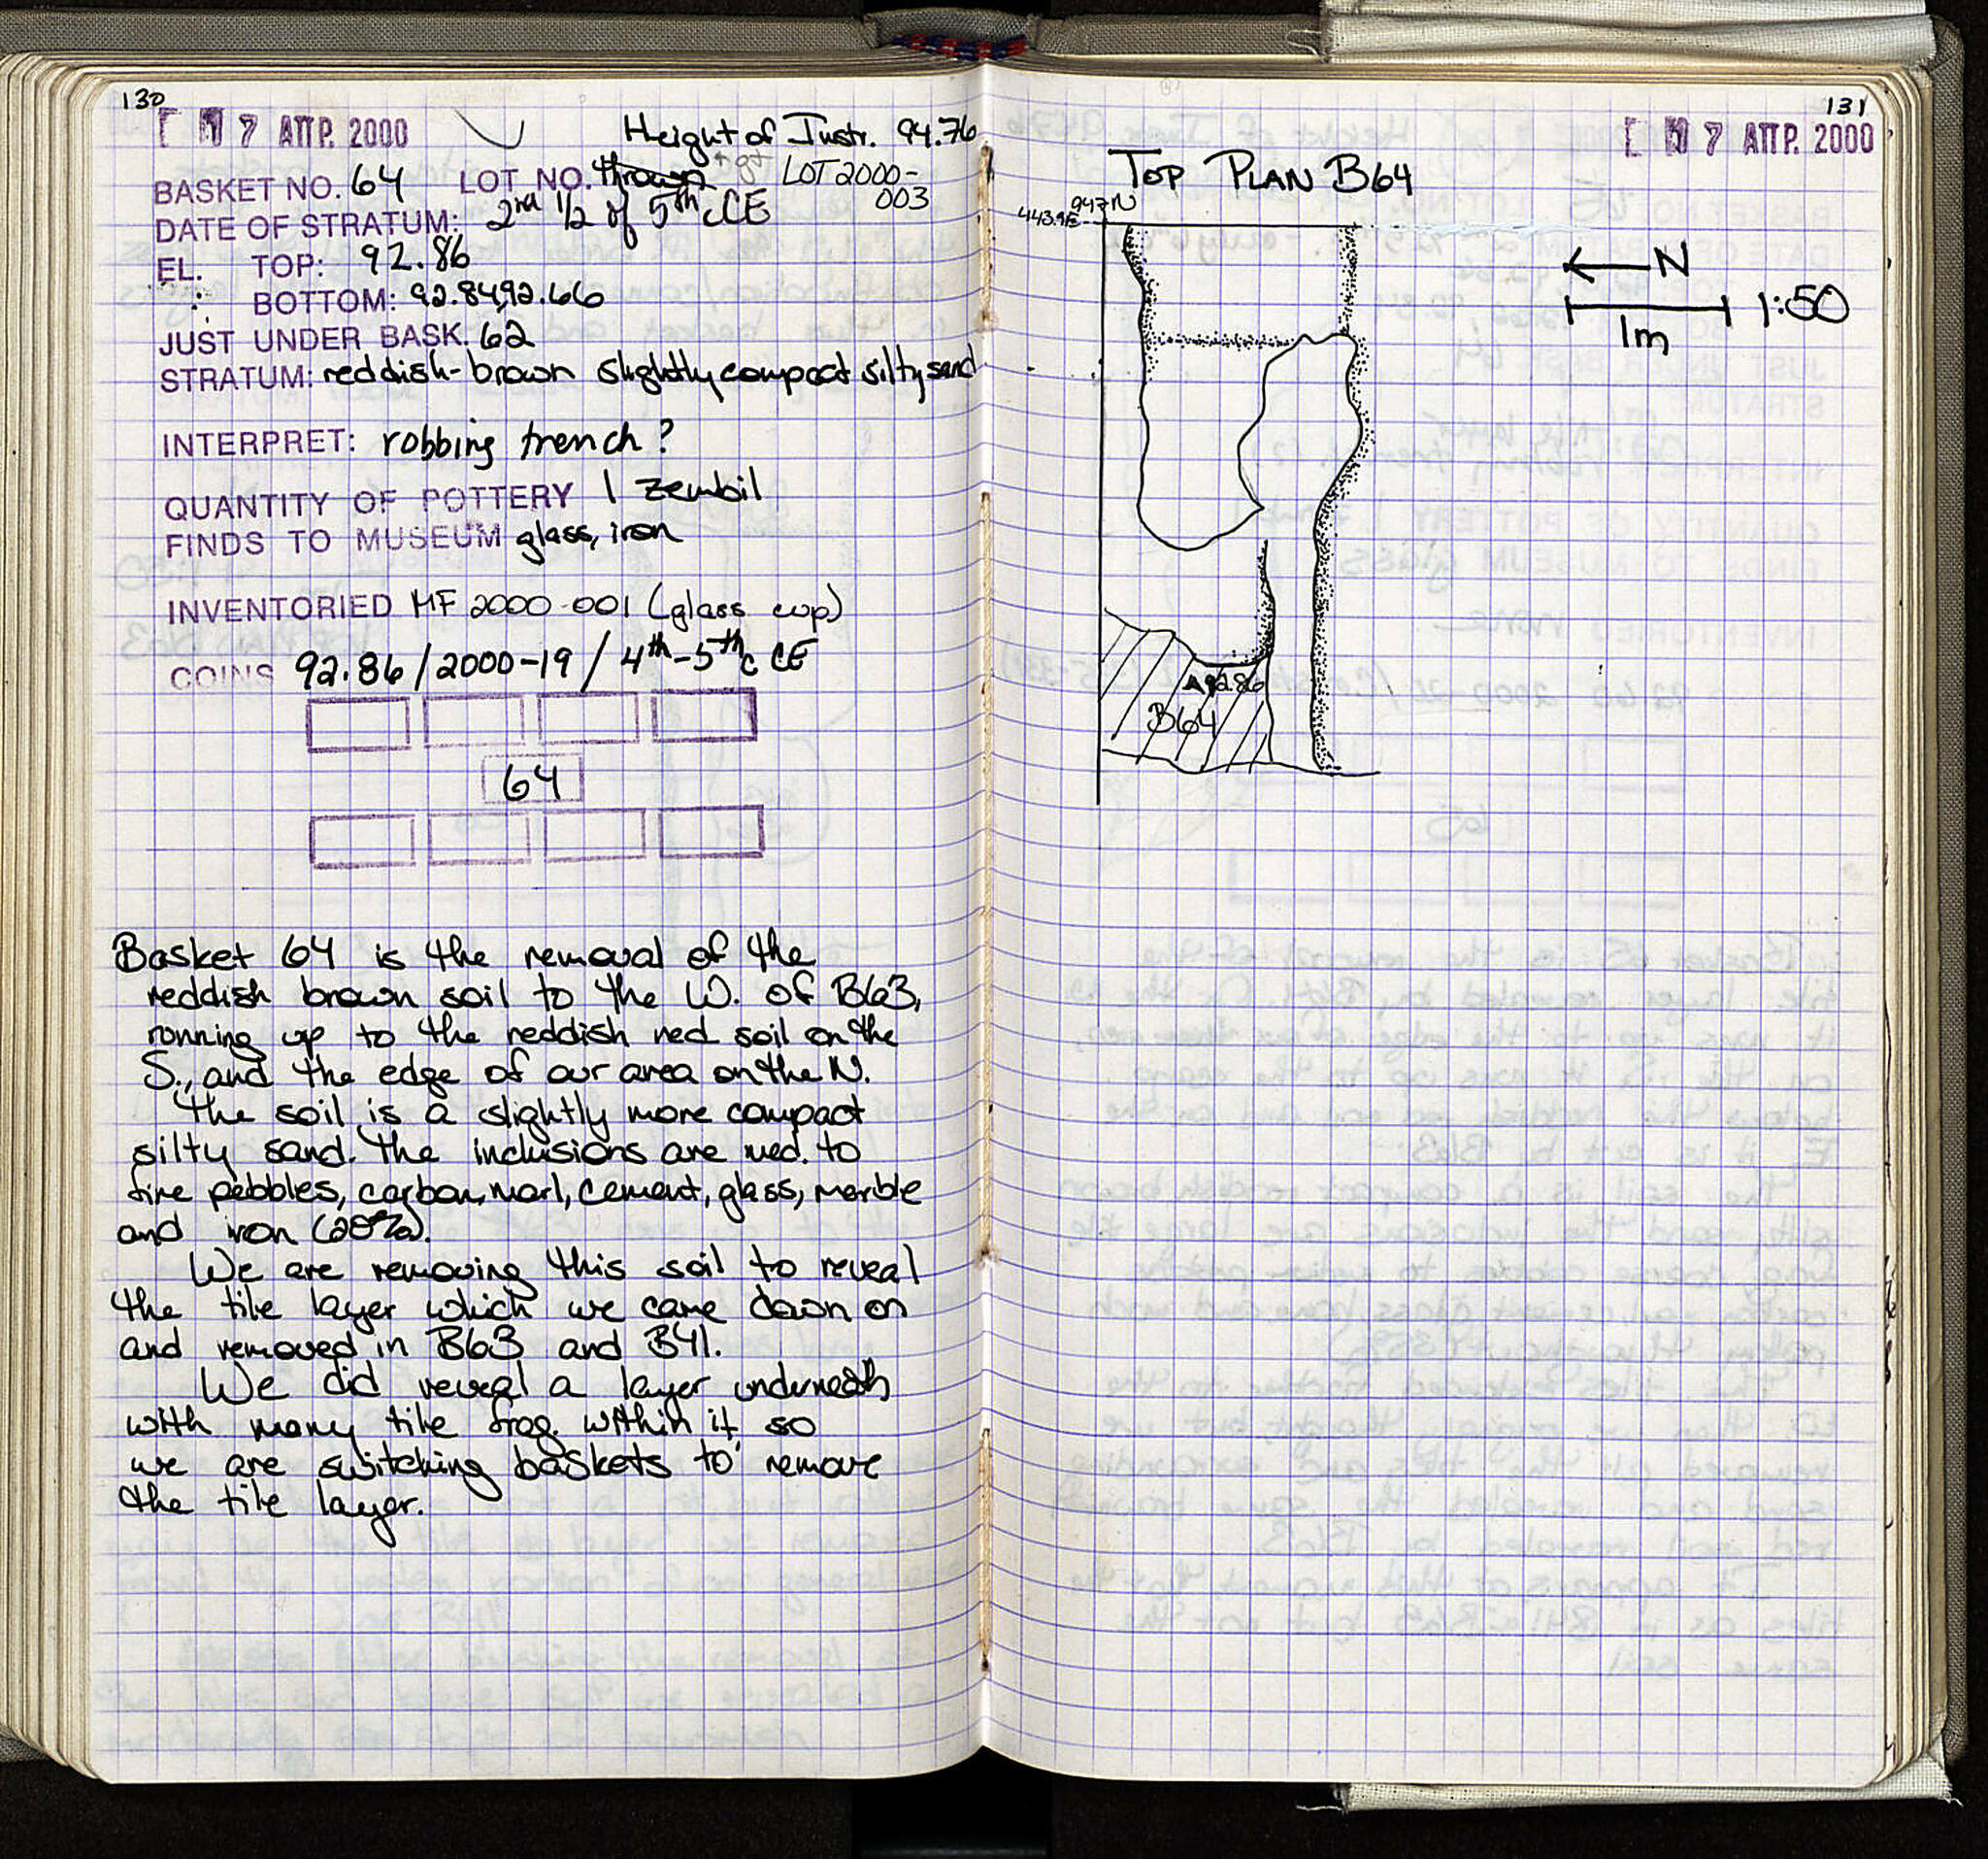 130
[ 0 7 ΑΠΡ. 2000
Height of Instr. 94.76
BASKET NO. 64 LOT NO. thrown LOT 2000-
003
DATE OF STRATUM: 2nd 1/2 of 5th c CE
EL. TOP: 92.86
BOTTOM: 92.84, 92.66
JUST UNDER BASK. 62
STRATUM: reddish-brown slightly compact silty sand
INTERPRET: robbing trench?
QUANTITY OF POTTERY 1 zembil
FINDS TO MUSEUM glass, iron
INVENTORIED MF 2000-001 (glass cup)
COINS 92.86 / 2000-19 / 4th-5th c CE
64
Basket 64 is the removal of the
reddish brown soil to the W. of B63,
running up to the reddish red soil on the
S., and the edge of our area on the N.
The soil is a slightly more compact
silty sand. The inclusions are med. to
fine pebbles, carbon, marl, cement, glass, marble
and iron (20%).
We are removing this soil to reveal
the tile layer which we came down on
and removed in B63 and B41.
We did reveal a layer underneath
with many tile frag. within it, so
we are switching baskets to remove
the tile layer.
131
[ 0 7 ΑΠΡ. 2000
TOP PLAN B64
947N
443.9E
N
1m 1:50
92.86
B64